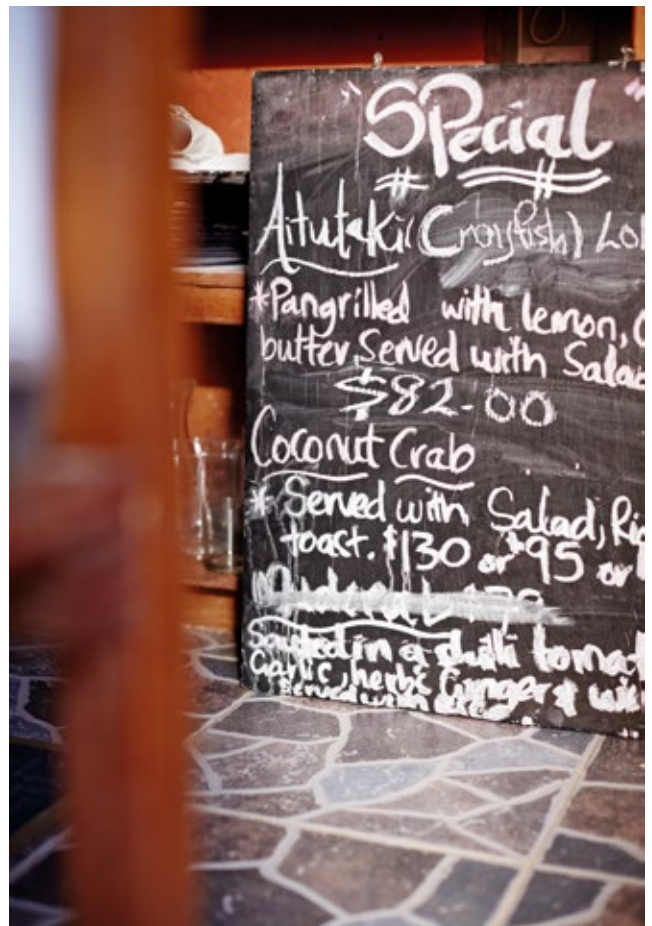 "SPecial"
Aitutaki (Crayfish) Lo
*Pangrilled with lemon,
butter, Served with Salad
$82-00
Coconut Crab
* Served with Salad, Ri
toast. $130 or $95 or
Sauted in a chilli tomat
Garlic, herbs Ginger &
Served with